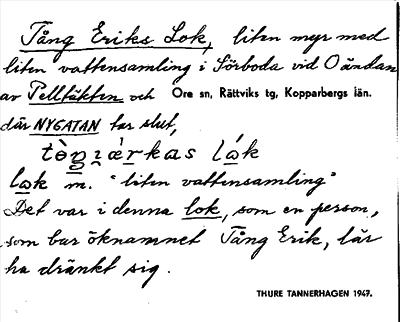 Tång Eriks Lok, liten myr med
liten vattensamling i Sörboda vid O ändan
av Pelltäkten och Ore sn, Rättviks tg, Kopparbergs län.
där NYGATAN tar slut,
tòngi̯ǽrkas lák
lak m. "liten vattensamling"
Det var i denna lok, som en person,
som bar öknamnet Tång Erik, lär
ha dränkt sig.
THURE TANNERHAGEN 1947.